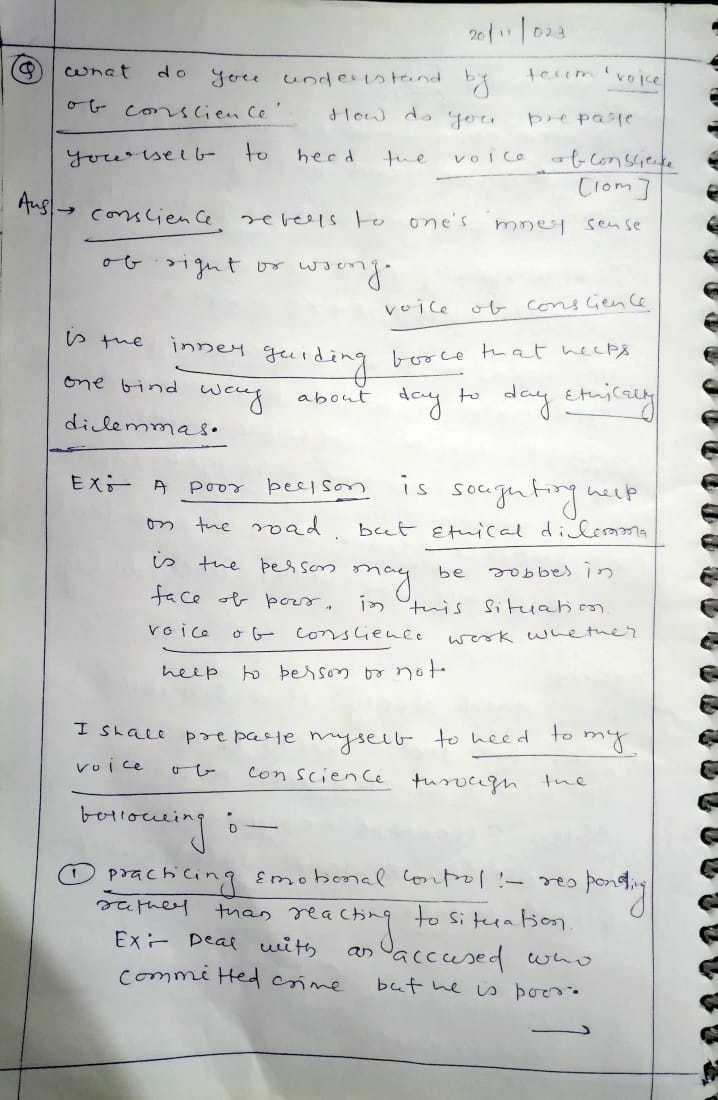 20/11/023
Q what do you understand by term 'voice
of conscience'. How do you prepare
yourself to heed the voice of conscience
[10m]
Ans → conscience refers to one's inner sense
of right or wrong.
voice of conscience
is the inner guiding force that helps
one find way about day to day ethically
dilemmas.
Ex:- A poor person is soughting help
on the road. but Ethical dilemma
is the person may be robbes in
face of poor. in this situation
voice of conscience work whether
help to person or not.
I shall prepare myself to heed to my
voice of conscience through the
following :-
① practicing Emotional control :- responding
rather than reacting to situation.
Ex:- Deal with an accused who
committed crime but he is poor.
→